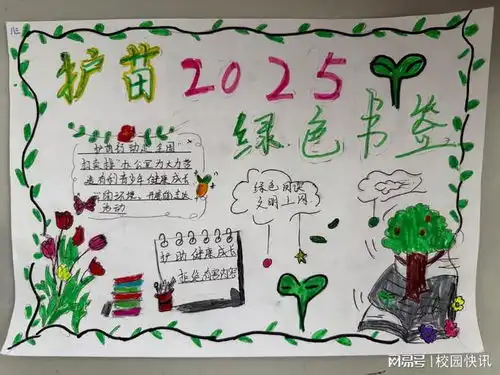 护苗2025
绿色书签
护苗行动是全国
扫黄打非办公室为大力营
造有利青少年健康成长
的
活动
绿色阅读
文明上网
护助健康成长
拒绝
网易号 | 校园快讯